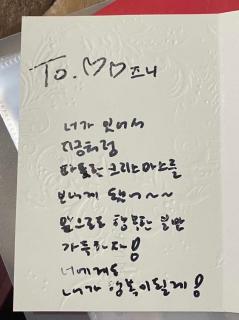 To. ♡♡즈니
너가 있어서
지금처럼
따뜻한 크리스마스를
보내게 됐어~~
앞으로도 행복한 일만
가득하자!
너에게도
내가 행복이 될게!